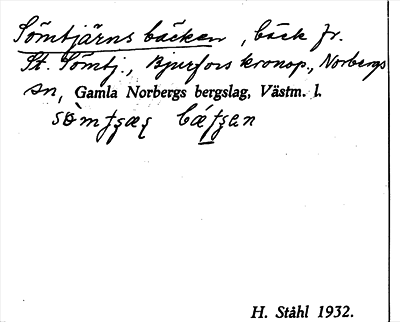 Sömtjärnsbäcken, bäck fr.
St. Sömtj., Bjurfors kronop., Norbergs
sn, Gamla Norbergs bergslag, Västm. l.
H. Ståhl 1932.